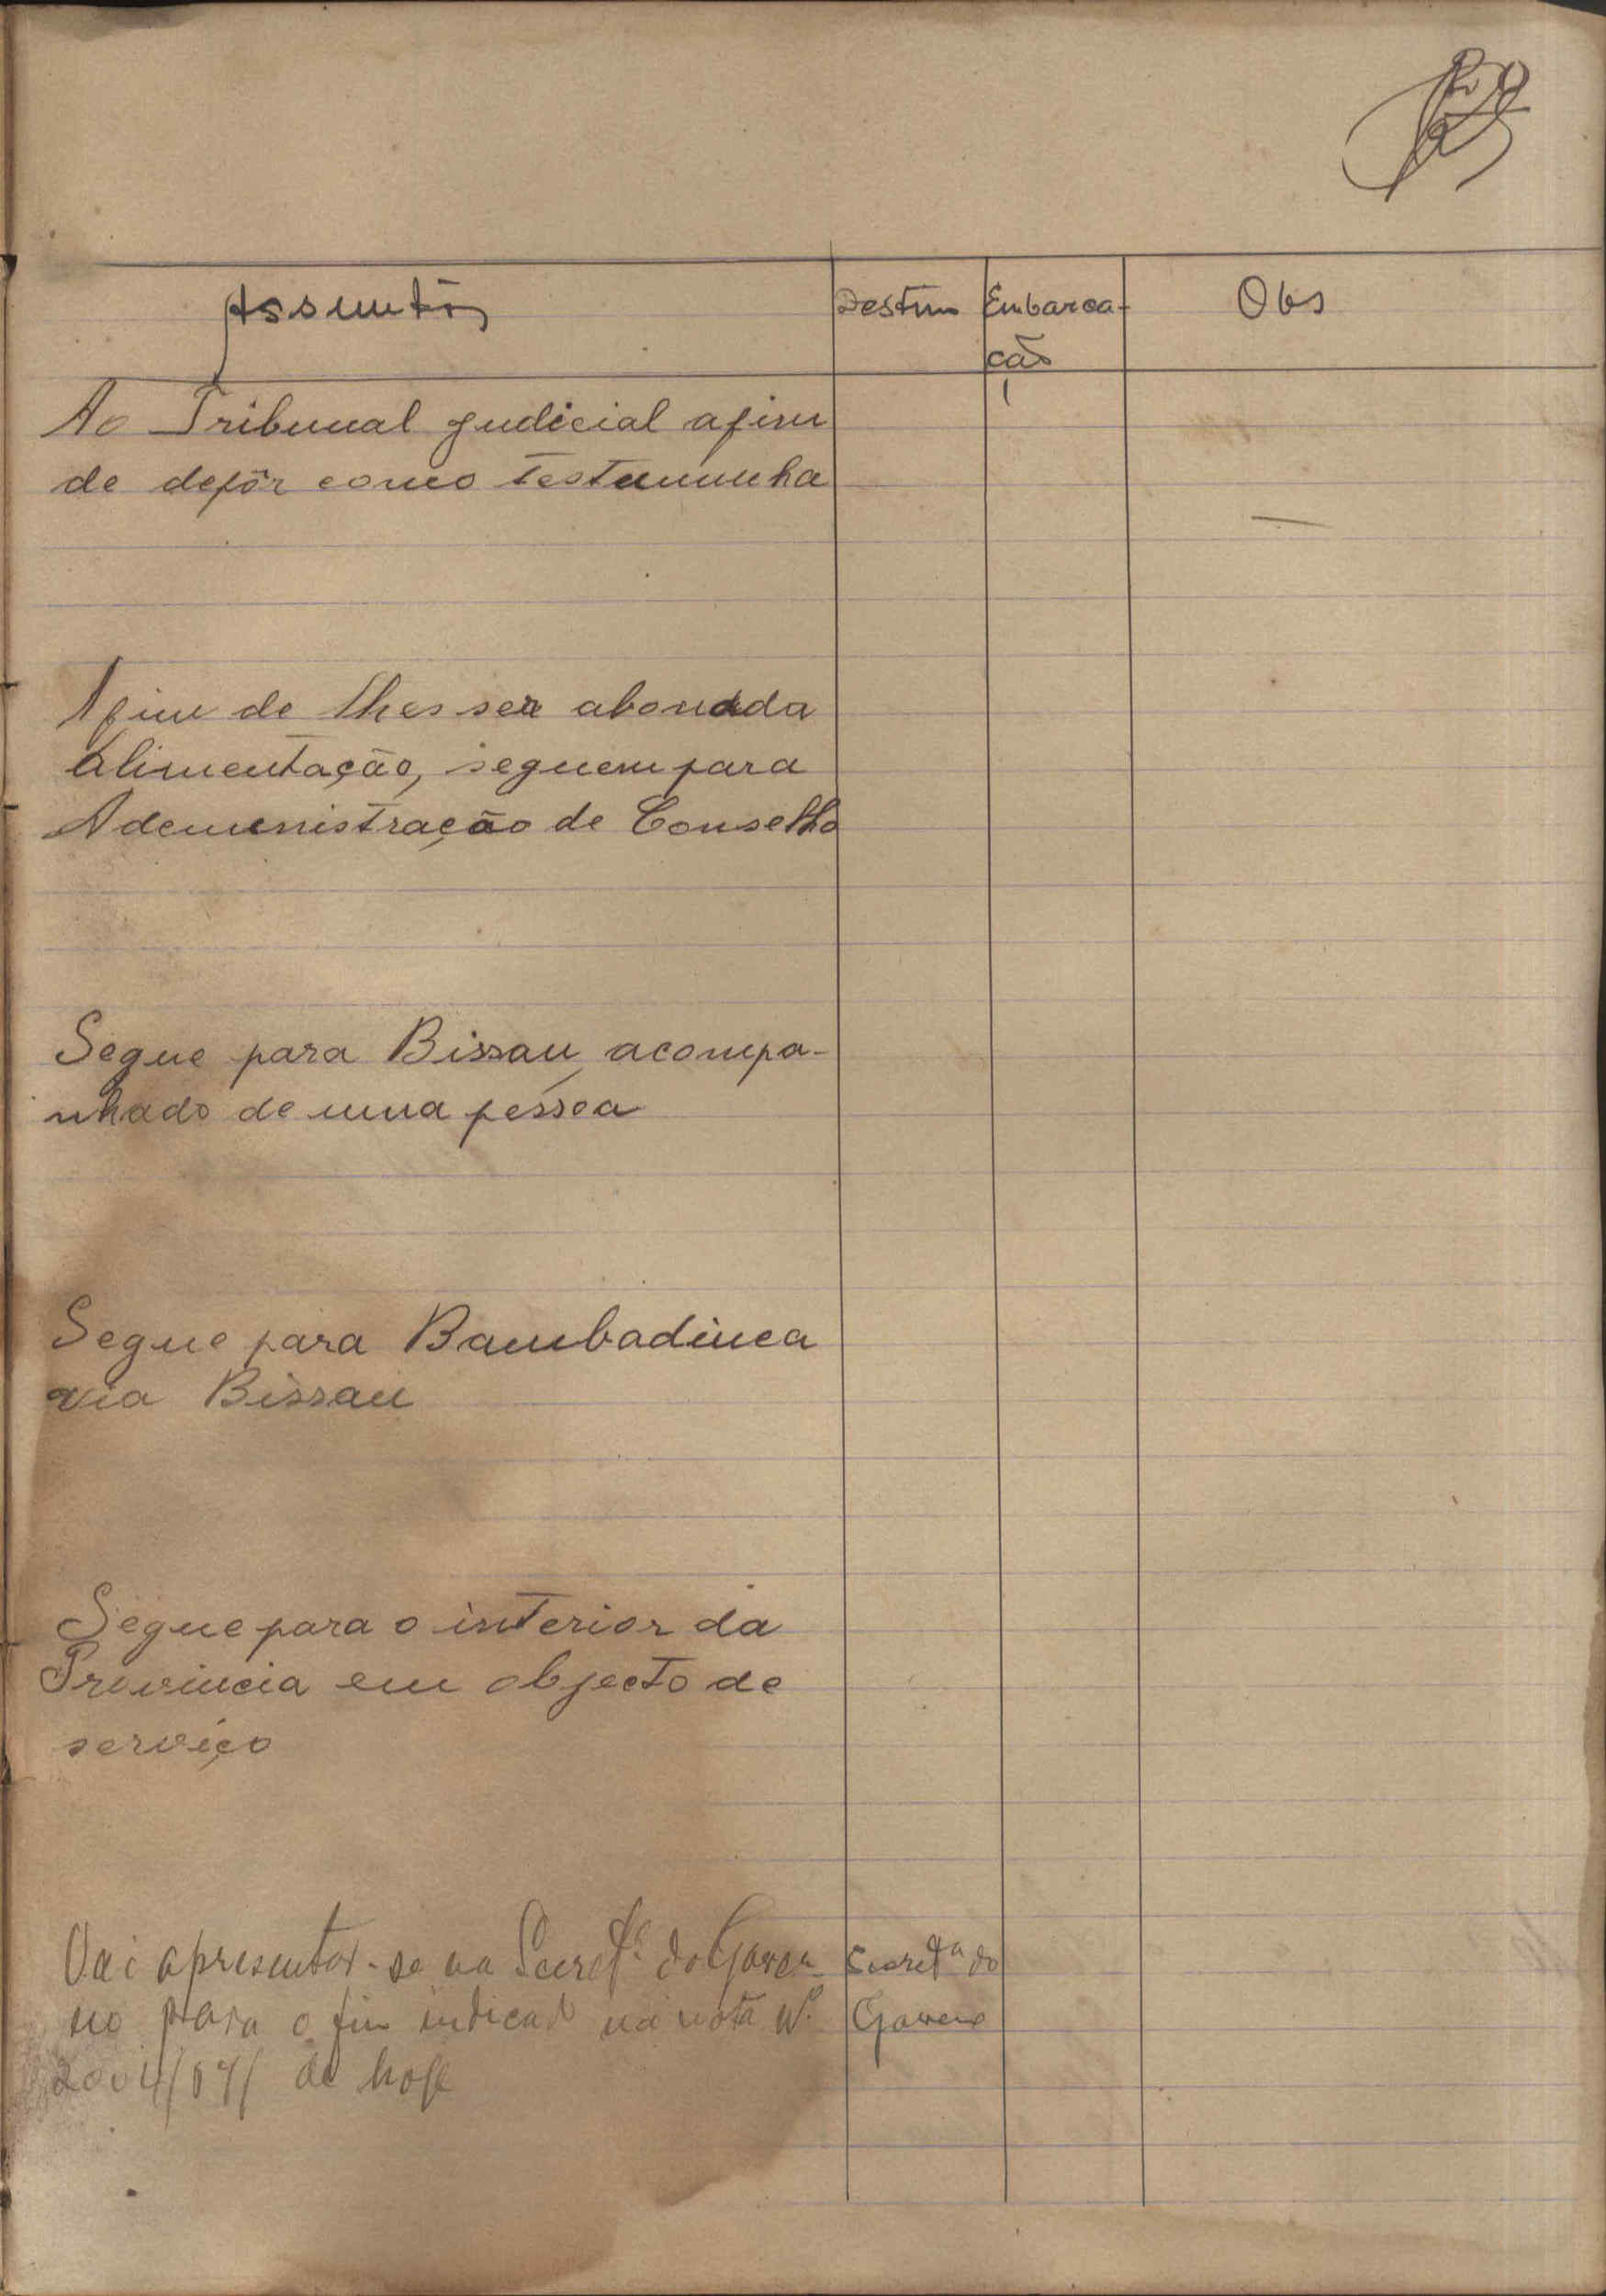 Assuntos Destino Embarca-
ção Obs
Ao Tribunal Judicial afim
de depôr como testemunha
Afim de lhes ser abonada
alimentação, seguem para
Ademenistração de Conselho
Segue para Bissau acompa-
nhado de uma pessoa
Segue para Bambadinca
via Bissau
Segue para o interior da
Provincia em objecto de
serviço
Vai apresentar-se na Secretª do Gover- Secretª do
no para o fim indicado na nota Nº Governo
de hoje